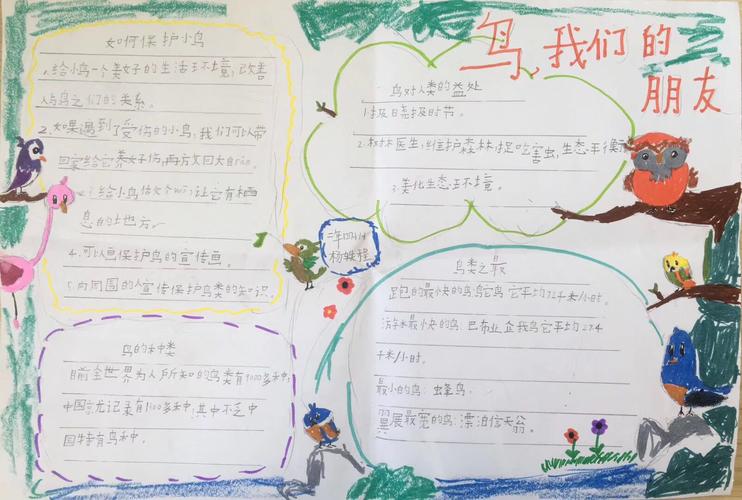 鸟,我们的
朋友
如何保护小鸟
1.给小鸟一个美好的生活环境,改善
人与鸟之们的关系。
2.如果遇到了受伤的小鸟,我们可以带
回家给它养好伤,再方文回大自rán。
3.给小鸟做个wō,让它有栖
息的地方。
4.可以画保护鸟的宣传画。
5.向周围的人宣传保护鸟类的知识。
鸟对人类的益处
1.报日晓报时节。
2.树林医生,维护森林,捉吃害虫,生态平衡
3.美化生态环境。
杨轶程
鸟类之最
跑的最快的鸟:鸵鸟 它平均72千米/小时。
游泳最快的鸟:巴布亚企我鸟它平均27.4
千米/小时。
最小的鸟:蜂鸟
翼展最宽的鸟:漂泊信天翁。
鸟的种类
目前全世界为人所知的鸟类有9000多种,
中国记录有1100多种,其中不乏中
国特有鸟种。